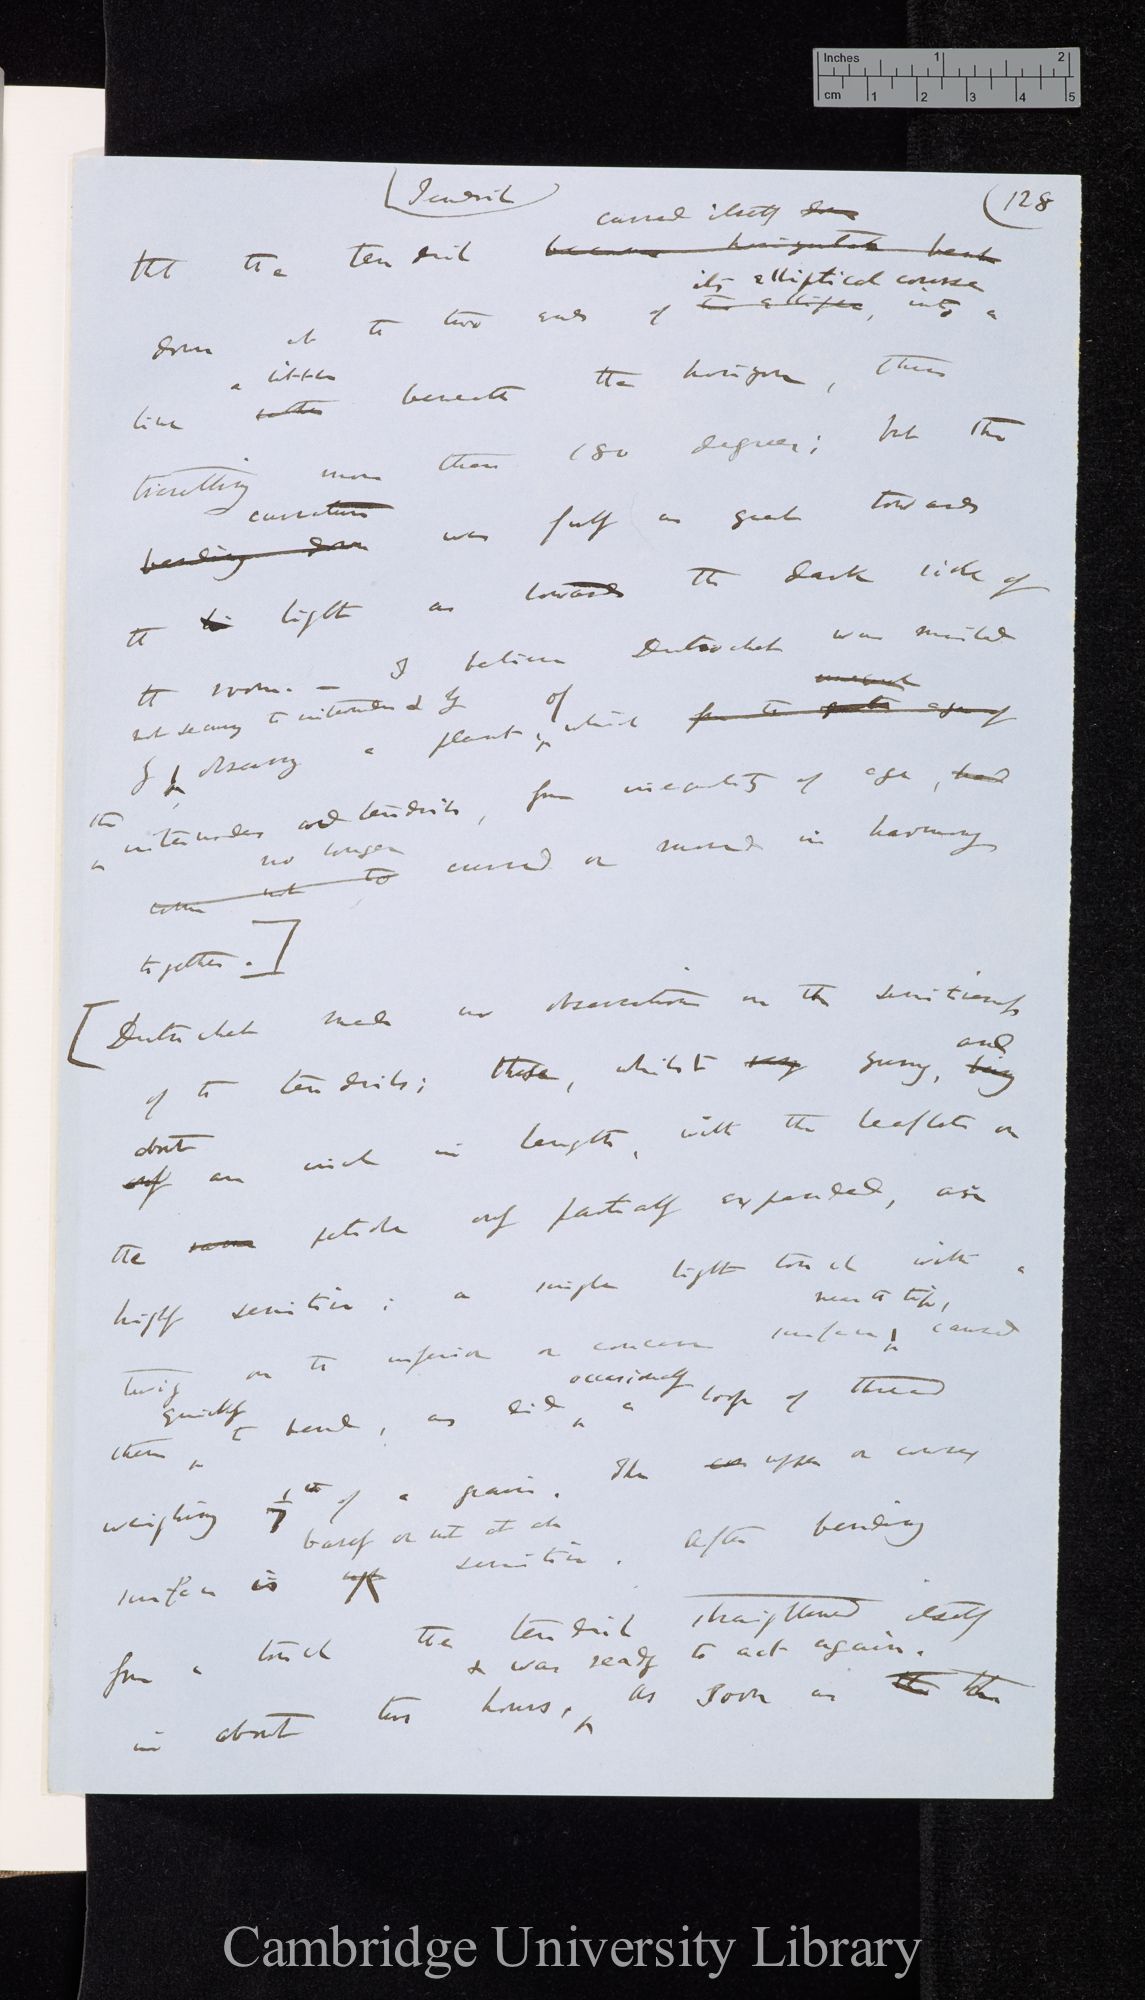 Inches 1 2
cm 1 2 3 4 5
(Tendril)
(128
curved itself down
that the tendril became horizontal bent
its elliptical course
down at the two ends of the ellipse, into a
a little
line beneath the horizon, thus
travelling more than 180 degrees; but the
curvature
bending down was fully as great towards
the light as towards the dark side of
the room. — I believe Dutrochet was misled
not securing the internodes & by
by observing a plant, of which from the
the internodes and tendrils, from inequality of age, had
no longer
could not to curved or moved in harmony
together.]
[Dutrochet made no observations on the sensitiveness
and
of the tendrils; these, whilst very young, being
about
only an inch in length, with the leaflets on
the same petiole only partially expanded, are
highly sensitive; a single light touch with a
near the tip,
twig on the inferior or concave surface, caused
quickly occasionally
them to bend, as did a loop of thread
weighing 1/7th of a grain. The upper or convex
barely or not at all
surface is not sensitive. After bending
from a touch the tendril straightened itself
& was ready to act again.
in about two hours, As soon as the the
Cambridge University Library